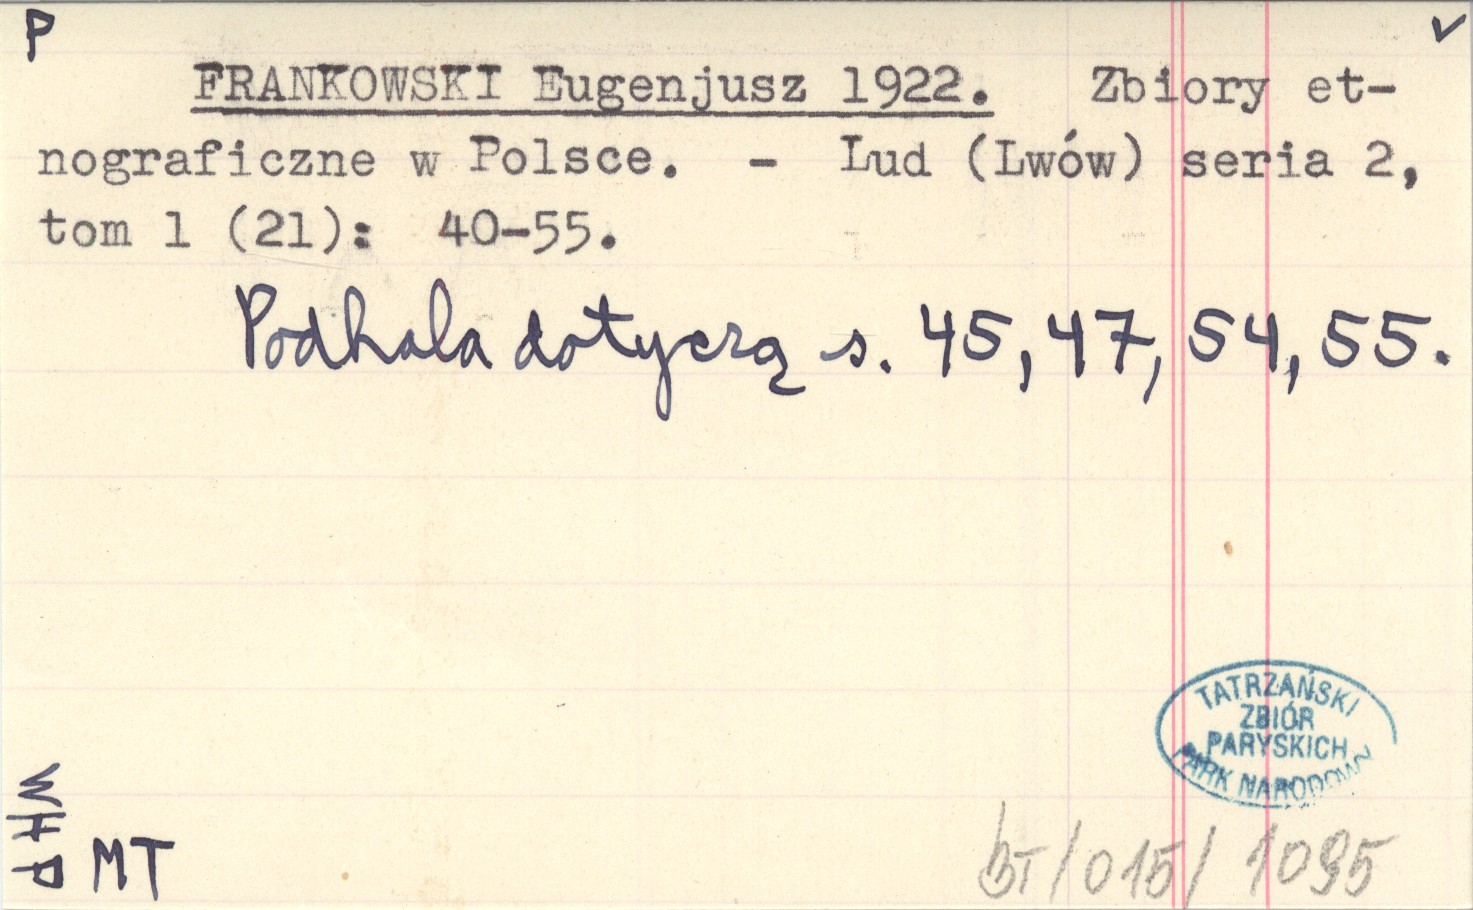 P
V
FRANKOWSKI Eugenjusz 1922. Zbiory et-
nograficzne w Polsce. - Lud (Lwów) seria 2,
tom 1 (21): 40-55.
Podhala dotyczą s. 45, 47, 54, 55.
TATRZAŃSKI
ZBIÓR
PARYSKICH
PARK NARODOWY
MT
BT/015/1095